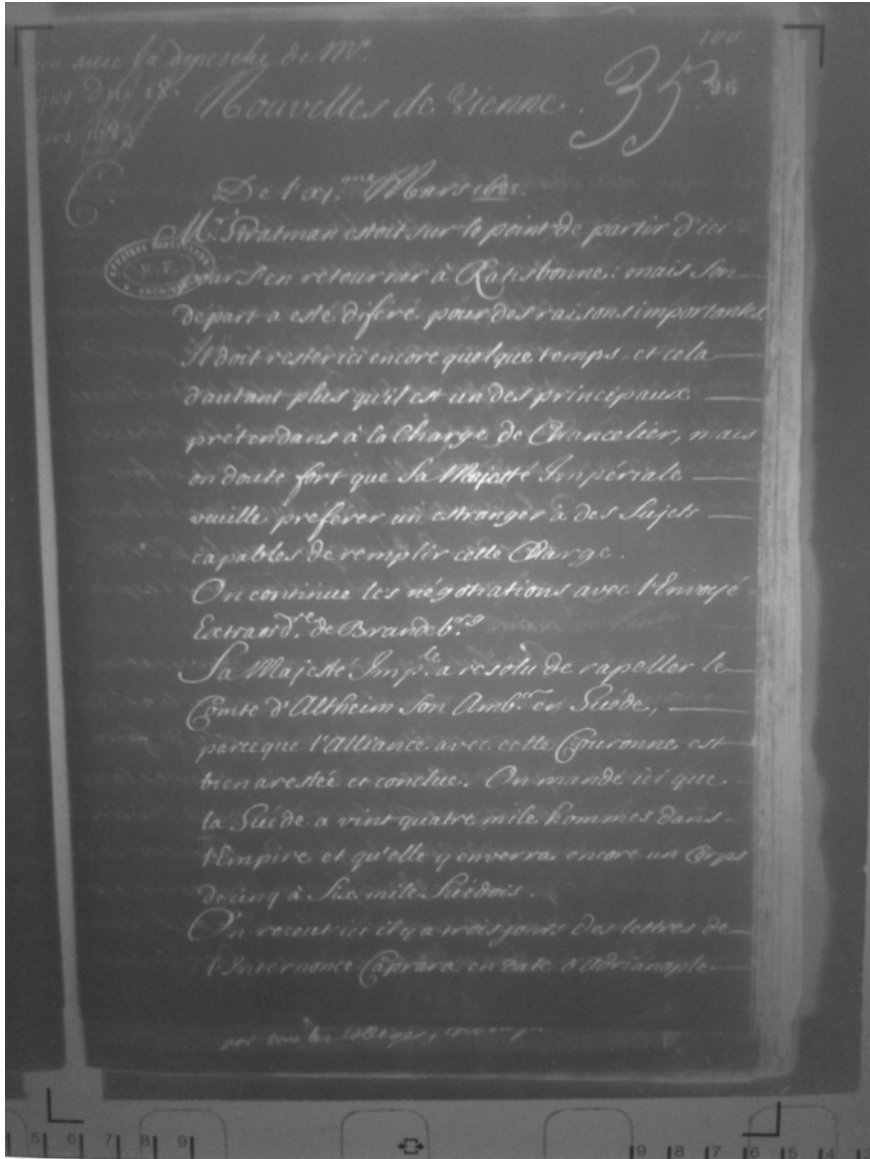 avec sa depesche de Mr.
du 18.
mars 1683
100
Nouvelles de Vienne.
35
96
C.
De l'xi.me Mars 1683.
Mr. Stratman estoit sur le point de partir d'ici
pour s'en retourner à Ratisbonne: mais son
depart a esté diféré pour des raisons importantes
Il doit rester ici encore quelque temps et cela
d'autant plus qu'il est un des principaux
prétendans à la Charge de Chancelier, mais
on doute fort que Sa Majesté Impériale
veuille préférer un estranger à des Sujets
capables de remplir cette Charge.
On continue les négotiations avec l'Envoyé
Extraord.re de Brandeb.rg
Sa Majesté Imp.le a resolu de rapeller le
Comte d'Altheim son Amb.eur en Suéde,
parce que l'Alliance avec cette Couronne est
bien arestée et conclue. On mande ici que
la Suéde a vint quatre mile hommes dans
l'Empire et qu'elle y enverra encore un Corps
de cinq à Six mile Suédois.
On receut ici il y a trois jours des lettres de
l'Internonce Caprara en date d'Adrianople
R.F.
5 6 7 8 9
9 8 7 6 5 4